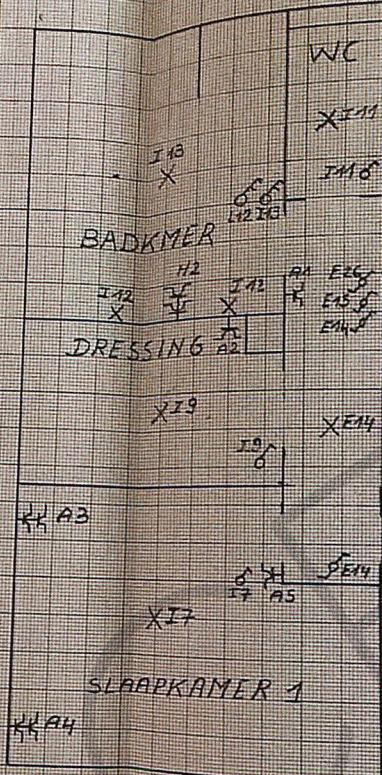 WC
I11
I13
I11
I12 I13
BADKMER
H2
I12
I12
A1
E26
E15
E14
DRESSING
A2
I9
E14
I9
A3
E14
I7
A5
I7
SLAAPKAMER 1
A4